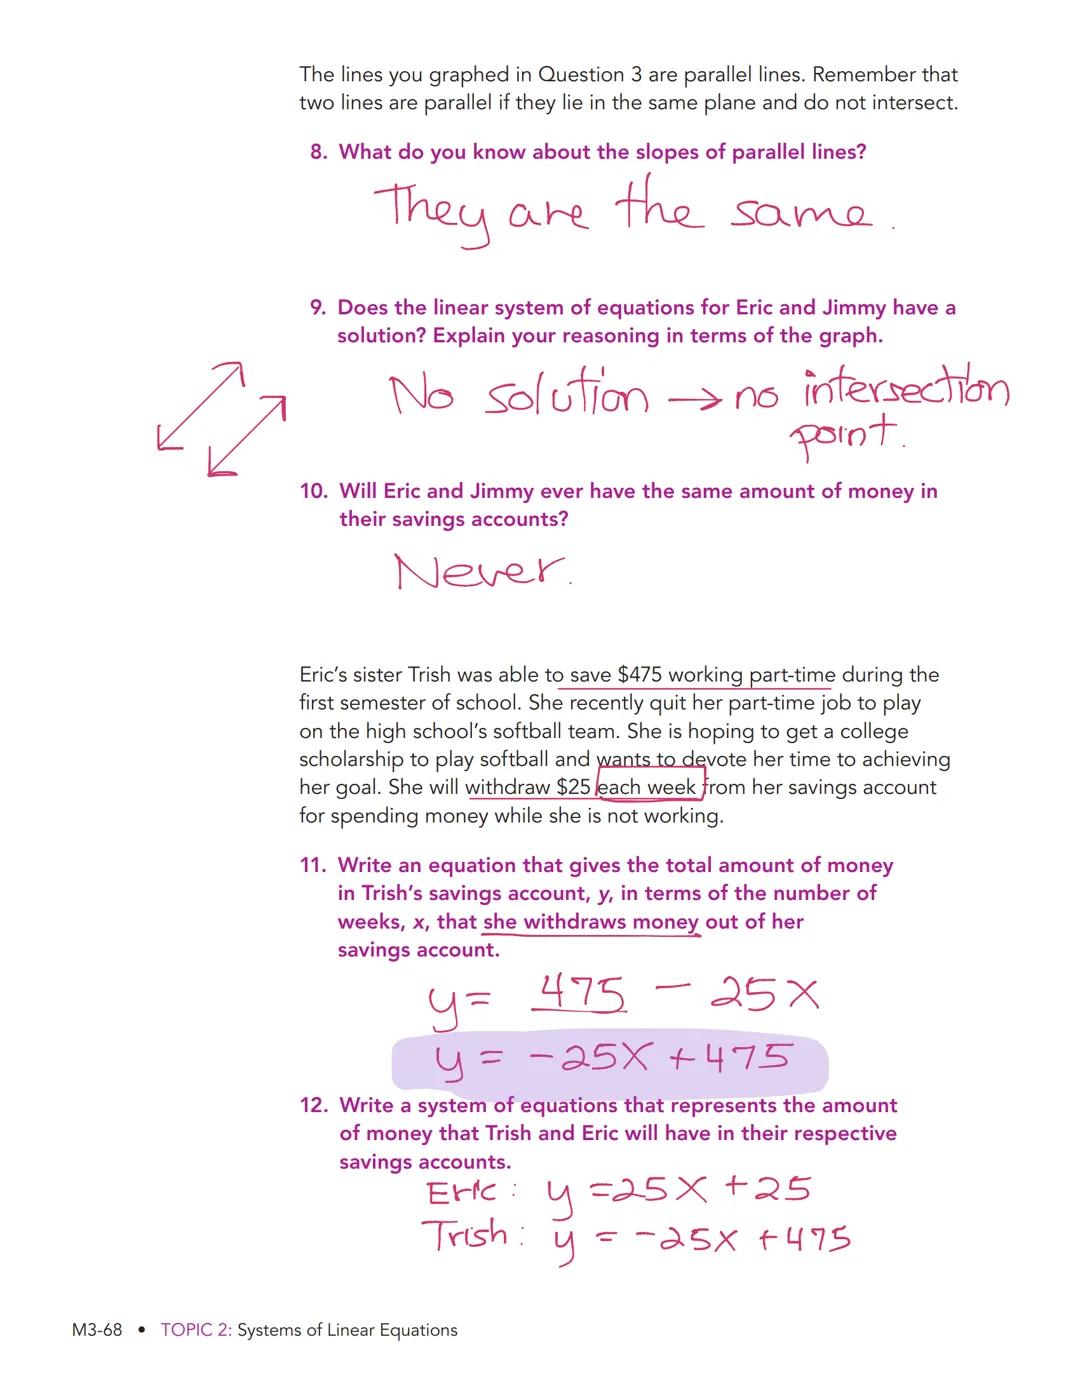 The lines you graphed in Question 3 are parallel lines. Remember that
two lines are parallel if they lie in the same plane and do not intersect.
8. What do you know about the slopes of parallel lines?
They are the same.
9. Does the linear system of equations for Eric and Jimmy have a
solution? Explain your reasoning in terms of the graph.
No solution → no intersection
point.
10. Will Eric and Jimmy ever have the same amount of money in
their savings accounts?
Never.
Eric's sister Trish was able to save $475 working part-time during the
first semester of school. She recently quit her part-time job to play
on the high school's softball team. She is hoping to get a college
scholarship to play softball and wants to devote her time to achieving
her goal. She will withdraw $25 each week from her savings account
for spending money while she is not working.
11. Write an equation that gives the total amount of money
in Trish's savings account, y, in terms of the number of
weeks, x, that she withdraws money out of her
savings account.
y = 475 - 25x
y = -25x + 475
12. Write a system of equations that represents the amount
of money that Trish and Eric will have in their respective
savings accounts.
Eric: y = 25x + 25
Trish: y = -25x + 475
M3-68 • TOPIC 2: Systems of Linear Equations